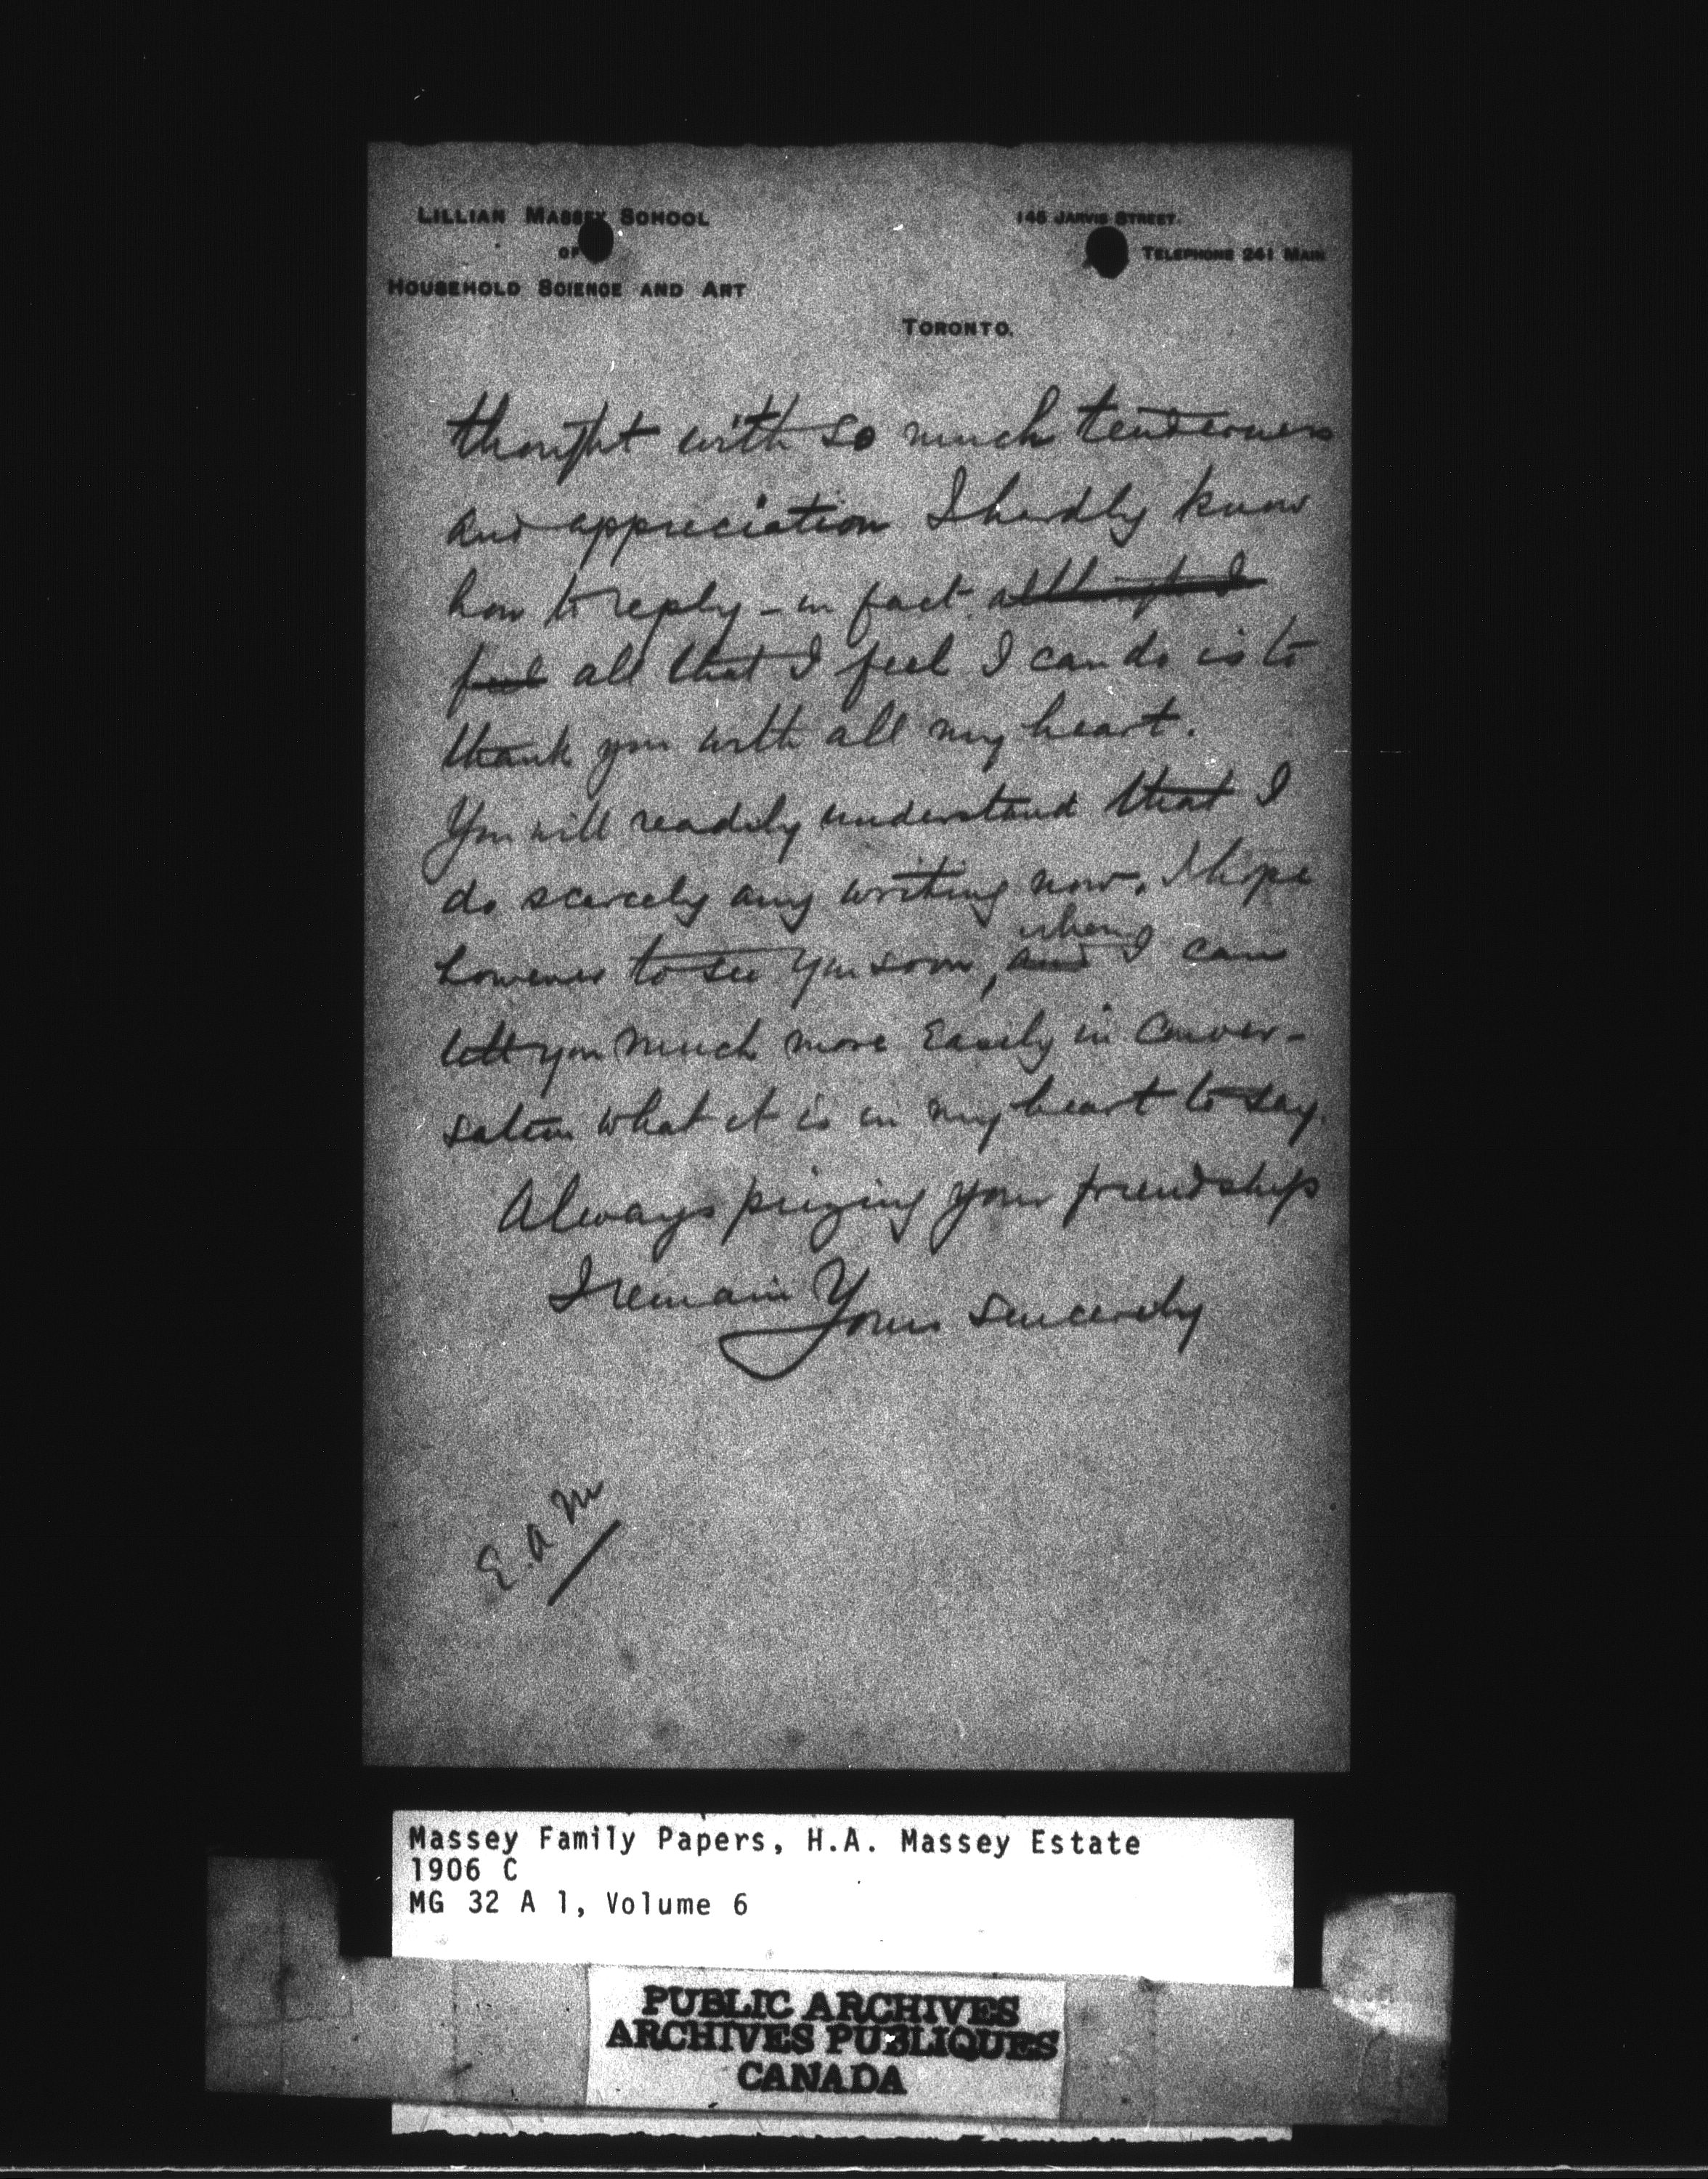 LILLIAN MASSEY SCHOOL
OF
HOUSEHOLD SCIENCE AND ART
145 JARVIS STREET.
TELEPHONE 241 MAIN
TORONTO.
thought with so much tenderness
and appreciation I hardly know
how to reply – in fact although I
feel all that I feel I can do is to
thank you with all my heart.
You will readily understand that I
do scarcely any writing now. I hope
when
however to see you soon, and I can
tell you much more easily in conver-
sation what it is in my heart to say.
Always prizing your friendship
I remain
Yours sincerely
E. A M
Massey Family Papers, H.A. Massey Estate
1906 C
MG 32 A 1, Volume 6
PUBLIC ARCHIVES
ARCHIVES PUBLIQUES
CANADA